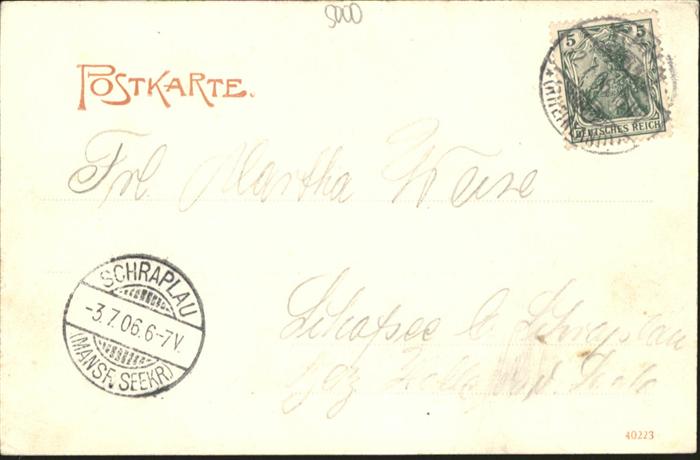 5000
POSTKARTE.
5 5
DEUTSCHES REICH
Frl. Martha Weise
SCHRAPLAU
-3.7.06.6-7V.
(MANSF. SEEKR)
Schafsee b. Schraplau
Bez Halle a/d. Saale
40223